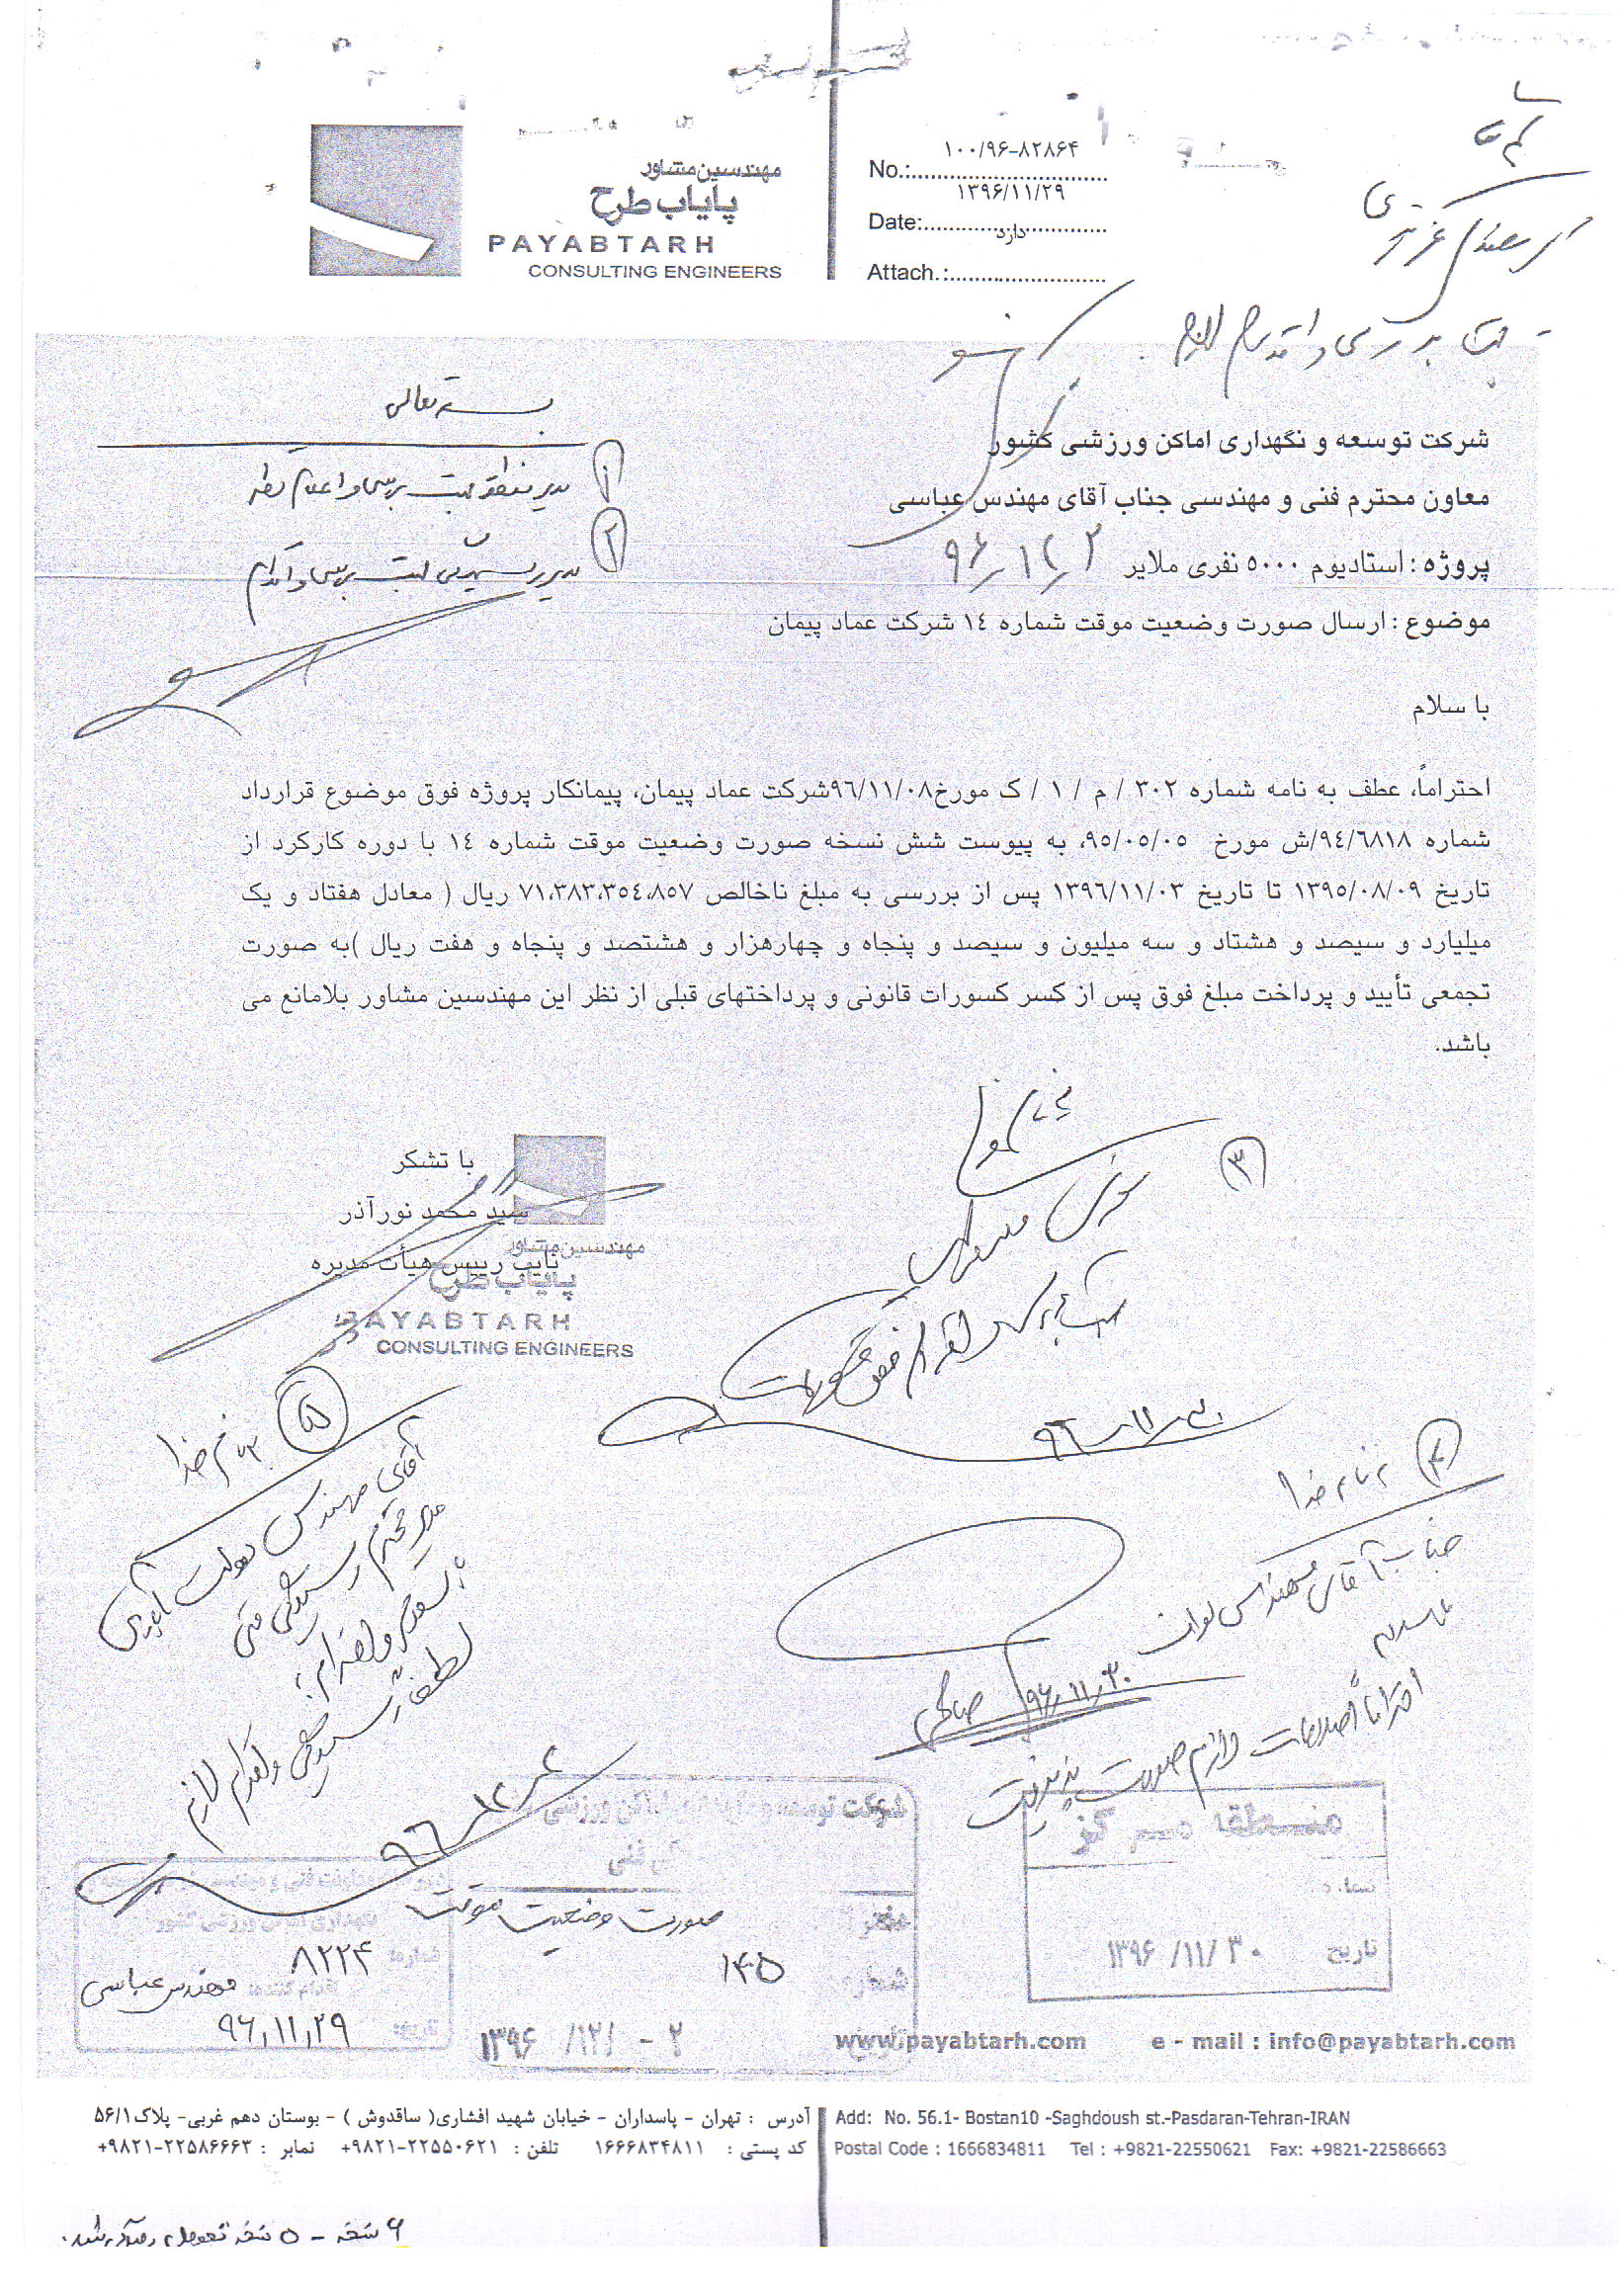 مهندسین مشاور
پایاب طرح
PAYABTARH
CONSULTING ENGINEERS
No.: ۱۰۰/۹۶-۸۲۸۶۴
Date: ۱۳۹۶/۱۱/۲۹
Attach.: دارد
بسمه تعالی
۱ مدیر منطقه جهت بررسی و اعلام نظر
۲ مدیر جهت بررسی و اقدام
شرکت توسعه و نگهداری اماکن ورزشی کشور
معاون محترم فنی و مهندسی جناب آقای مهندس عباسی
پروژه : استادیوم ۵۰۰۰ نفری ملایر
۹۶/۱۲/۲
موضوع : ارسال صورت وضعیت موقت شماره ۱٤ شرکت عماد پیمان
با سلام
احتراماً، عطف به نامه شماره ۳۰۲ / م / ۱ / ک مورخ۹٦/۱۱/۰۸شرکت عماد پیمان، پیمانکار پروژه فوق موضوع قرارداد
شماره ۹٤/٦۸۱۸/ش مورخ ۹٥/۰٥/۰٥، به پیوست شش نسخه صورت وضعیت موقت شماره ۱٤ با دوره کارکرد از
تاریخ ۱۳۹٥/۰۸/۰۹ تا تاریخ ۱۳۹٦/۱۱/۰۳ پس از بررسی به مبلغ ناخالص ۷۱،۳۸۳،۳٥٤،۸٥۷ ریال ( معادل هفتاد و یک
میلیارد و سیصد و هشتاد و سه میلیون و سیصد و پنجاه و چهارهزار و هشتصد و پنجاه و هفت ریال )به صورت
تجمعی تأیید و پرداخت مبلغ فوق پس از کسر کسورات قانونی و پرداختهای قبلی از نظر این مهندسین مشاور بلامانع می
باشد.
با تشکر
سید محمد نورآذر
نایب رییس هیأت مدیره
مهندسین مشاور
پایاب طرح
PAYABTARH
CONSULTING ENGINEERS
۳
۹۶-۱۱-۳۰
۴
بنام خدا
جناب آقای مهندس
با سلام
احتراماً اصلاحات لازم صورت پذیرفت
۹۶/۱۱/۳۰
۵
بنام خدا
آقای مهندس
مدیر محترم رسیدگی فنی
با سلام و احترام؛
لطفاً رسیدگی و اقدام لازم
۹۶-۱۲-۲
منطقه مرکز
شماره
تاریخ ۱۳۹۶/۱۱/۳۰
شرکت توسعه و نگهداری اماکن ورزشی
صورت وضعیت موقت
شماره ۱۴۵
۱۳۹۶/۱۲/ - ۲
معاونت فنی و مهندسی
نگهداری اماکن ورزشی کشور
شماره: ۸۲۲۴
اقدام کننده: مهندس عباسی
تاریخ: ۹۶/۱۱/۲۹
www.payabtarh.com e - mail : info@payabtarh.com
آدرس : تهران - پاسداران - خیابان شهید افشاری( ساقدوش ) - بوستان دهم غربی- پلاک۵۶/۱
کد پستی : ۱۶۶۶۸۳۴۸۱۱ تلفن : ۲۲۵۵۰۶۲۱-۹۸۲۱+ نمابر : ۲۲۵۸۶۶۶۳-۹۸۲۱+
Add: No. 56.1- Bostan10 -Saghdoush st.-Pasdaran-Tehran-IRAN
Postal Code : 1666834811 Tel : +9821-22550621 Fax: +9821-22586663
۶ نسخه - ۵ نسخه تحویل